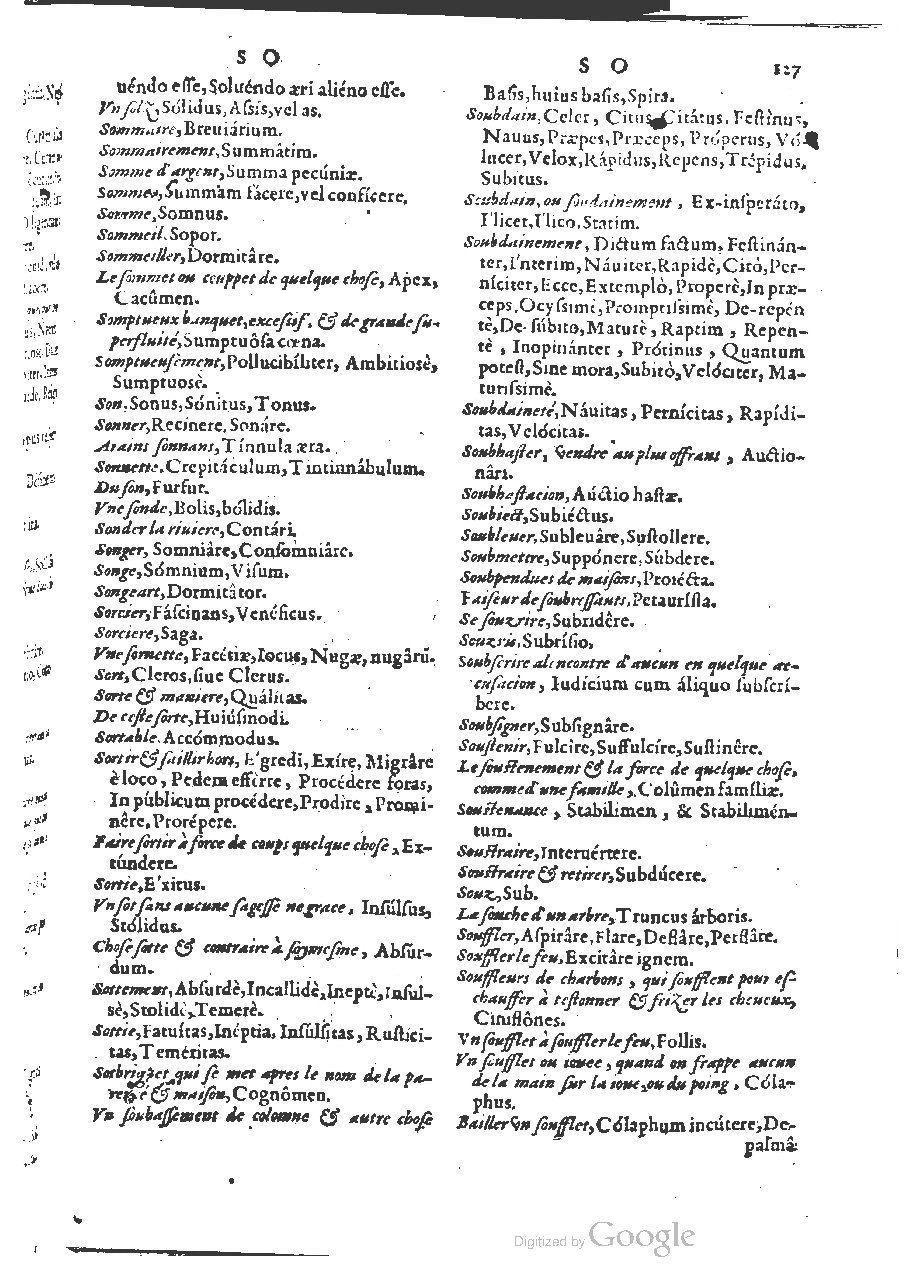 S O
uéndo esse, Soluéndo æri aliéno esse.
Vn solz, Sólidus, Assis, vel as.
Sommaire, Breuiárium.
Sommairement, Summâtim.
Somme d'argent, Summa pecúniæ.
Sommer, Summam fácere, vel confícere.
Somme, Somnus.
Sommeil, Sopor.
Sommeiller, Dormitâre.
Le sommet ou couppet de quelque chose, Apex,
Cacûmen.
Somptueux banquet, excessif, & de grande su-
perfluité, Sumptuôsa cœna.
Somptueusement, Pollucibíliter, Ambitiosè,
Sumptuosè.
Son, Sonus, Sónitus, Tonus.
Sonner, Recinere, Sonáre.
Arains sonnans, Tínnula æra.
Sonnette, Crepitáculum, Tintianábulum.
Du son, Furfur.
Vne sonde, Bolis, bólidis.
Sonder la riuiere, Contári.
Songer, Somniâre, Consomniâre.
Songe, Sómnium, Visum.
Songeart, Dormitâtor.
Sorcier, Fáscinans, Venéficus.
Sorciere, Saga.
Vne sornette, Facétiæ, Iocus, Nugæ, nugârū.
Sort, Cleros, siue Clerus.
Sorte & maniere, Quálitas.
De ceste sorte, Huiúsmodi.
Sortable, Accómmodus.
Sortir & saillir hors, E'gredi, Exíre, Migrâre
è loco, Pedem efferre, Procédere foras,
In públicum procédere, Prodire, Promi-
nêre, Prorépere.
Faire sortir à force de coups quelque chose, Ex-
túndere.
Sortie, E'xitus.
Vn sot sans aucune sagesse ne grace, Insúlsus,
Stólidus.
Chose sotte & contraire à soymesme, Absúr-
dum.
Sottement, Absurdè, Incallidè, Ineptè, Insul-
sè, Stolidè, Temerè.
Sottie, Fatuítas, Inéptia, Insúlsitas, Rustíci-
tas, Teméritas.
Sobriquet qui se met apres le nom de la pa-
rente & maison, Cognômen.
Vn soubassement de colomne & autre chose
S O 127
Basis, huius basis, Spira.
Soubdain, Celer, Citus, Citátus, Festînus,
Nauus, Præpes, Præceps, Próperus, Vó-
lucer, Velox, Rápidus, Repens, Trépidus,
Subitus.
Soubdain, ou soudainement, Ex-insperáto,
I'licet, I'lico, Statim.
Soubdainement, Dictum factum, Festinán-
ter, I'nterim, Náuiter, Rapidè, Citò, Per-
níciter, Ecce, Extemplò, Properè, In præ-
ceps, Ocyssimè, Promptissimè, De-repén
tè, De-súbito, Maturè, Raptim, Repen-
tè, Inopinánter, Prótinus, Quantum
potest, Sine mora, Subitò, Velóciter, Ma-
turissimè.
Soubdaineté, Náuitas, Pernícitas, Rapídi-
tas, Velócitas.
Soubhaster, vendre au plus offrant, Auctio-
nâri.
Soubhastacion, Aúctio hastæ.
Soubiect, Subiéctus.
Soubleuer, Subleuâre, Sustollere.
Soubmettre, Suppónere, Súbdere.
Soubpendues de maisons, Proiécta.
Faiseur de soubressauts, Petaurísta.
Se souzrire, Subridêre.
Souzris, Subrísio,
Soubscrire alencontre d'aucun en quelque ac-
cusacion, Iudícium cum áliquo subscrí-
bere.
Soubsigner, Subsignâre.
Soustenir, Fulcíre, Suffulcíre, Sustinêre.
Le soustenement & la force de quelque chose,
comme d'une famille, Colûmen famíliæ.
Soustenance, Stabilimen, & Stabilimén-
tum.
Soustraire, Interuértere.
Soustraire & retirer, Subdúcere.
Souz, Sub.
La souche d'un arbre, Truncus árboris.
Souffler, Aspirâre, Flare, Deflâre, Perflâre.
Souffler le feu, Excitâre ignem.
Souffleurs de charbons, qui soufflent pour es-
chauffer à testonner & frizer les cheueux,
Ciniflônes.
Vn soufflet à souffler le feu, Follis.
Vn soufflet ou iouee, quand on frappe aucun
de la main sur la ioue, ou du poing, Cóla-
phus.
Bailler vn soufflet, Cólaphum incútere, De-
palmâ-
Digitized by Google